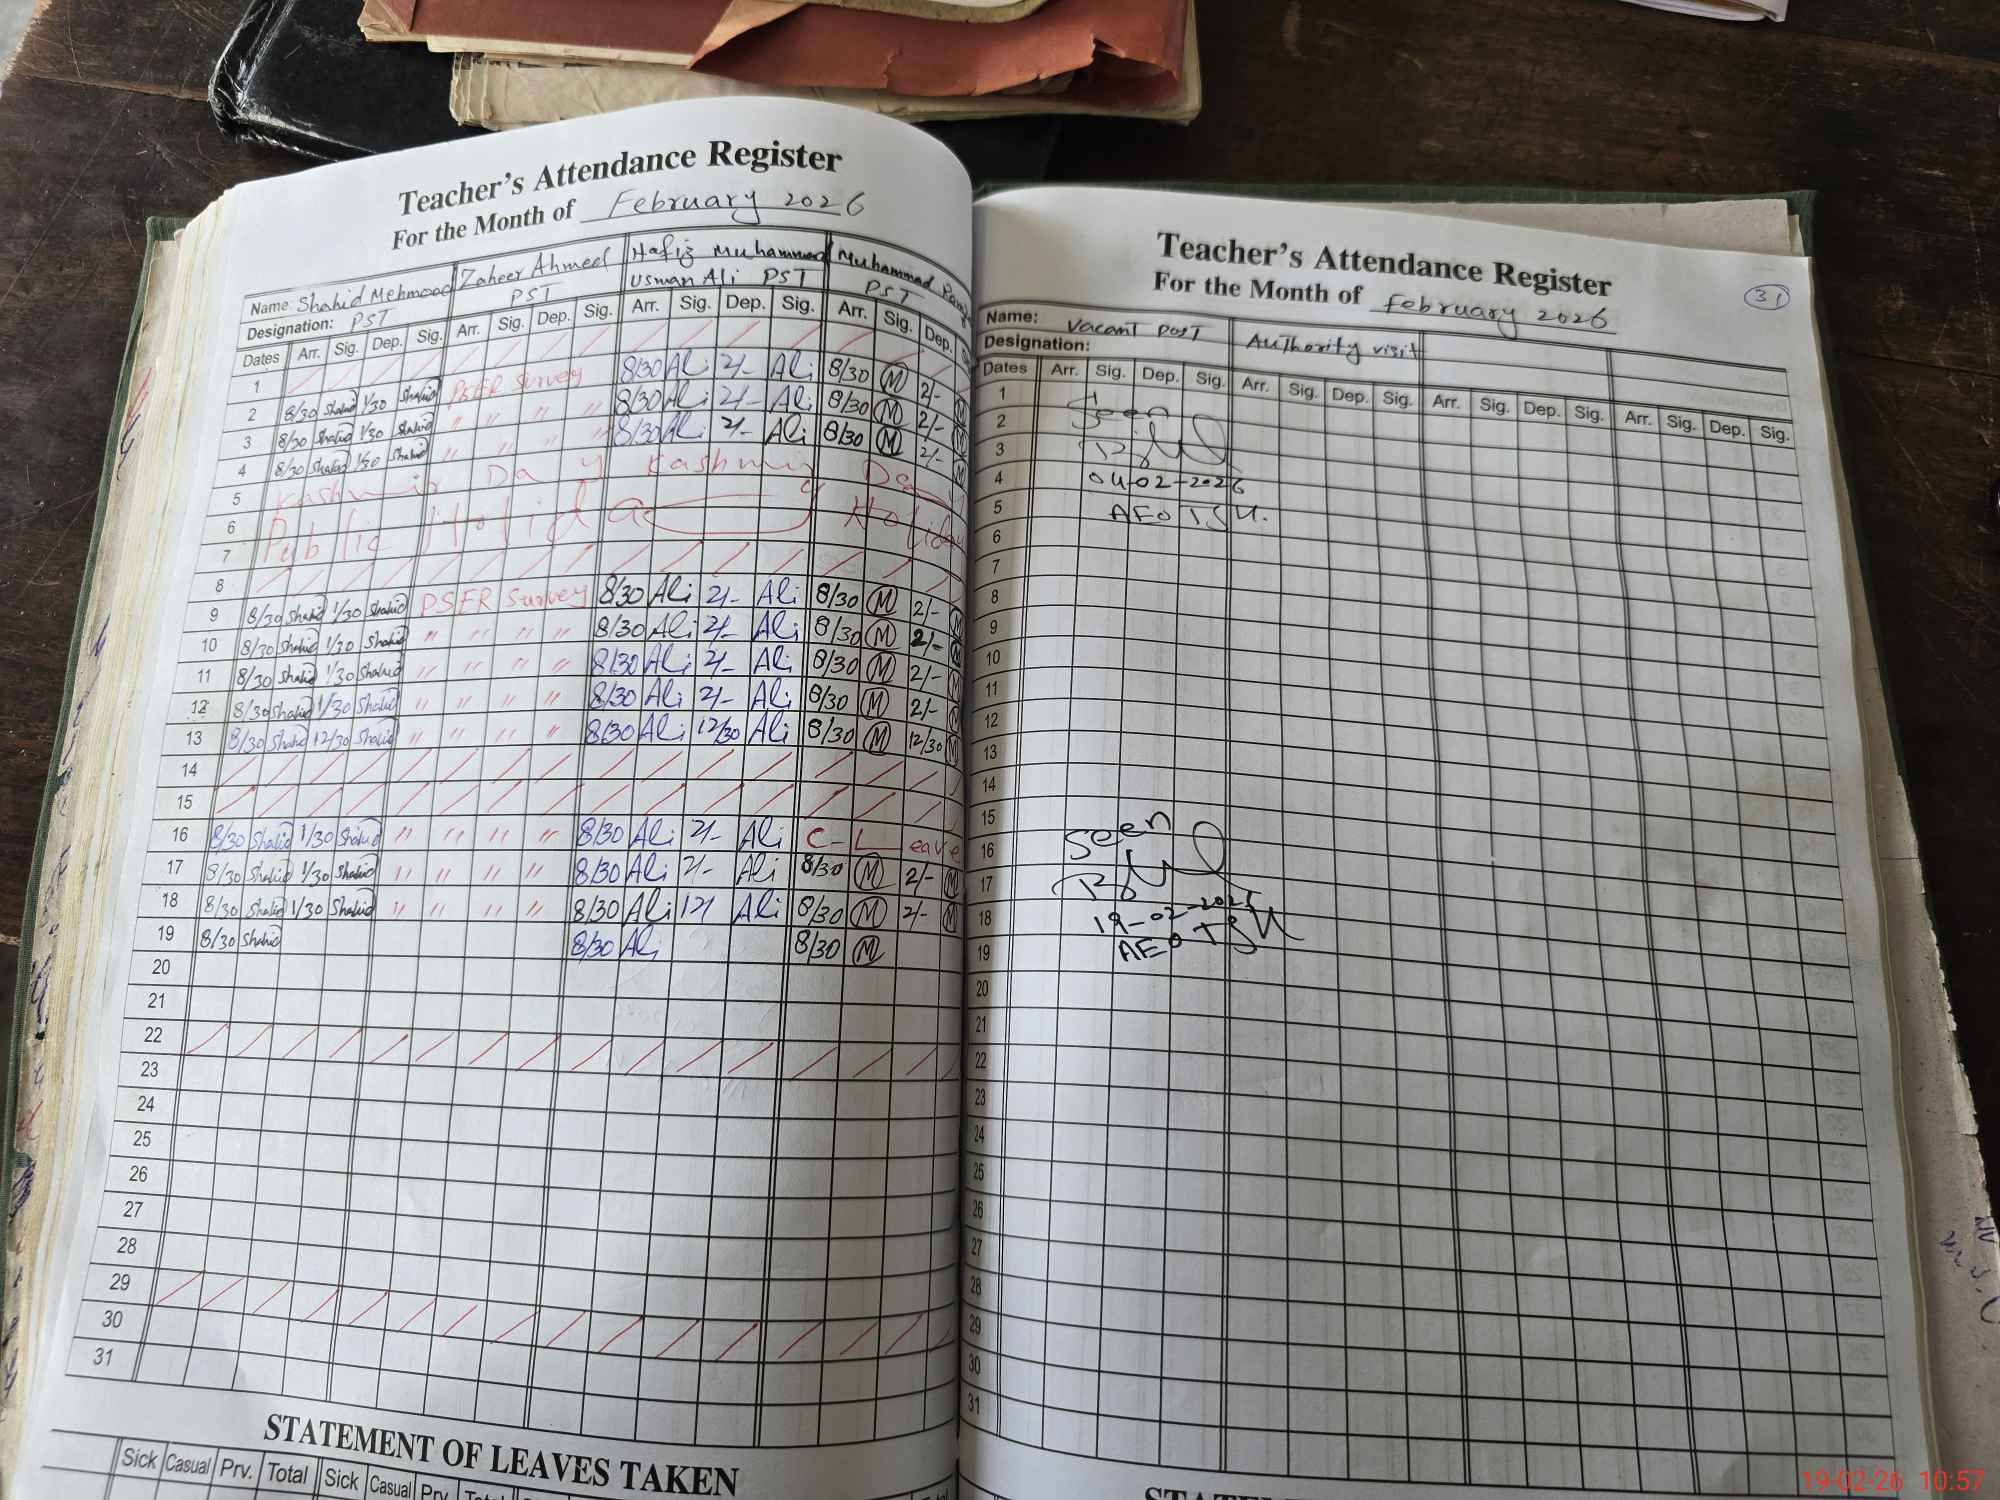 Teacher's Attendance Register
For the Month of February 2026
Name: Shahid Mehmood Zaheer Ahmed Hafiz Muhammad Muhammad
Designation: PST PST Usman Ali PST PST
Dates Arr. Sig. Dep. Sig. Arr. Sig. Dep. Sig. Arr. Sig. Dep. Sig. Arr. Sig. Dep.
1
2 8/30 Shahid 1/30 Shahid PSER Survey 8/30 Ali 2/- Ali 8/30 M 2/- M
3 8/30 Shahid 1/30 Shahid " " " " 8/30 Ali 2/- Ali 8/30 M 2/- M
4 8/30 Shahid 1/30 Shahid " " " " 8/30 Ali 2/- Ali 8/30 M 2/- M
5 Kashmir Day Kashmir Day
6 Public Holiday Holiday
7
8
9 8/30 Shahid 1/30 Shahid PSER Survey 8/30 Ali 2/- Ali 8/30 M 2/- M
10 8/30 Shahid 1/30 Shahid " " " " 8/30 Ali 2/- Ali 8/30 M 2/- M
11 8/30 Shahid 1/30 Shahid " " " " 8/30 Ali 2/- Ali 8/30 M 2/- M
12 8/30 Shahid 1/30 Shahid " " " " 8/30 Ali 2/- Ali 8/30 M 2/- M
13 8/30 Shahid 12/30 Shahid " " " " 8/30 Ali 12/30 Ali 8/30 M 12/30 M
14
15
16 8/30 Shahid 1/30 Shahid " " " " 8/30 Ali 2/- Ali C-Leave
17 8/30 Shahid 1/30 Shahid " " " " 8/30 Ali 2/- Ali 8/30 M 2/- M
18 8/30 Shahid 1/30 Shahid " " " " 8/30 Ali 12/ Ali 8/30 M 2/- M
19 8/30 Shahid 8/30 Ali 8/30 M
20
21
22
23
24
25
26
27
28
29
30
31
STATEMENT OF LEAVES TAKEN
Sick Casual Prv. Total Sick Casual Prv.
Teacher's Attendance Register
For the Month of February 2026
31
Name: Vacant Post Authority visit
Designation:
Dates Arr. Sig. Dep. Sig. Arr. Sig. Dep. Sig. Arr. Sig. Dep. Sig. Arr. Sig. Dep. Sig.
1
2 Seen
3
4 04-02-2026
5 AEO TSU.
6
7
8
9
10
11
12
13
14
15
16 Seen
17
18 19-02-2026
19 AEO TSU
20
21
22
23
24
25
26
27
28
29
30
31
19-02-26 10:57